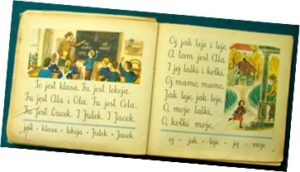 To jest klasa. Tu jest lekcja.
Tu jest Ala i Ola. Tu jest Cela.
Tu jest Orcek. I Julek. I Jacek.
jest • klasa • lekcja • Julek • Jacek
Oj jak leje i leje,
A tam jest Ala.
I jej lalki i kołki.
Oj mamo, mamo,
Jak leje, jak leje,
O, moje lalki,
O, kołki moje,
oj • jak • leje • jej • moje